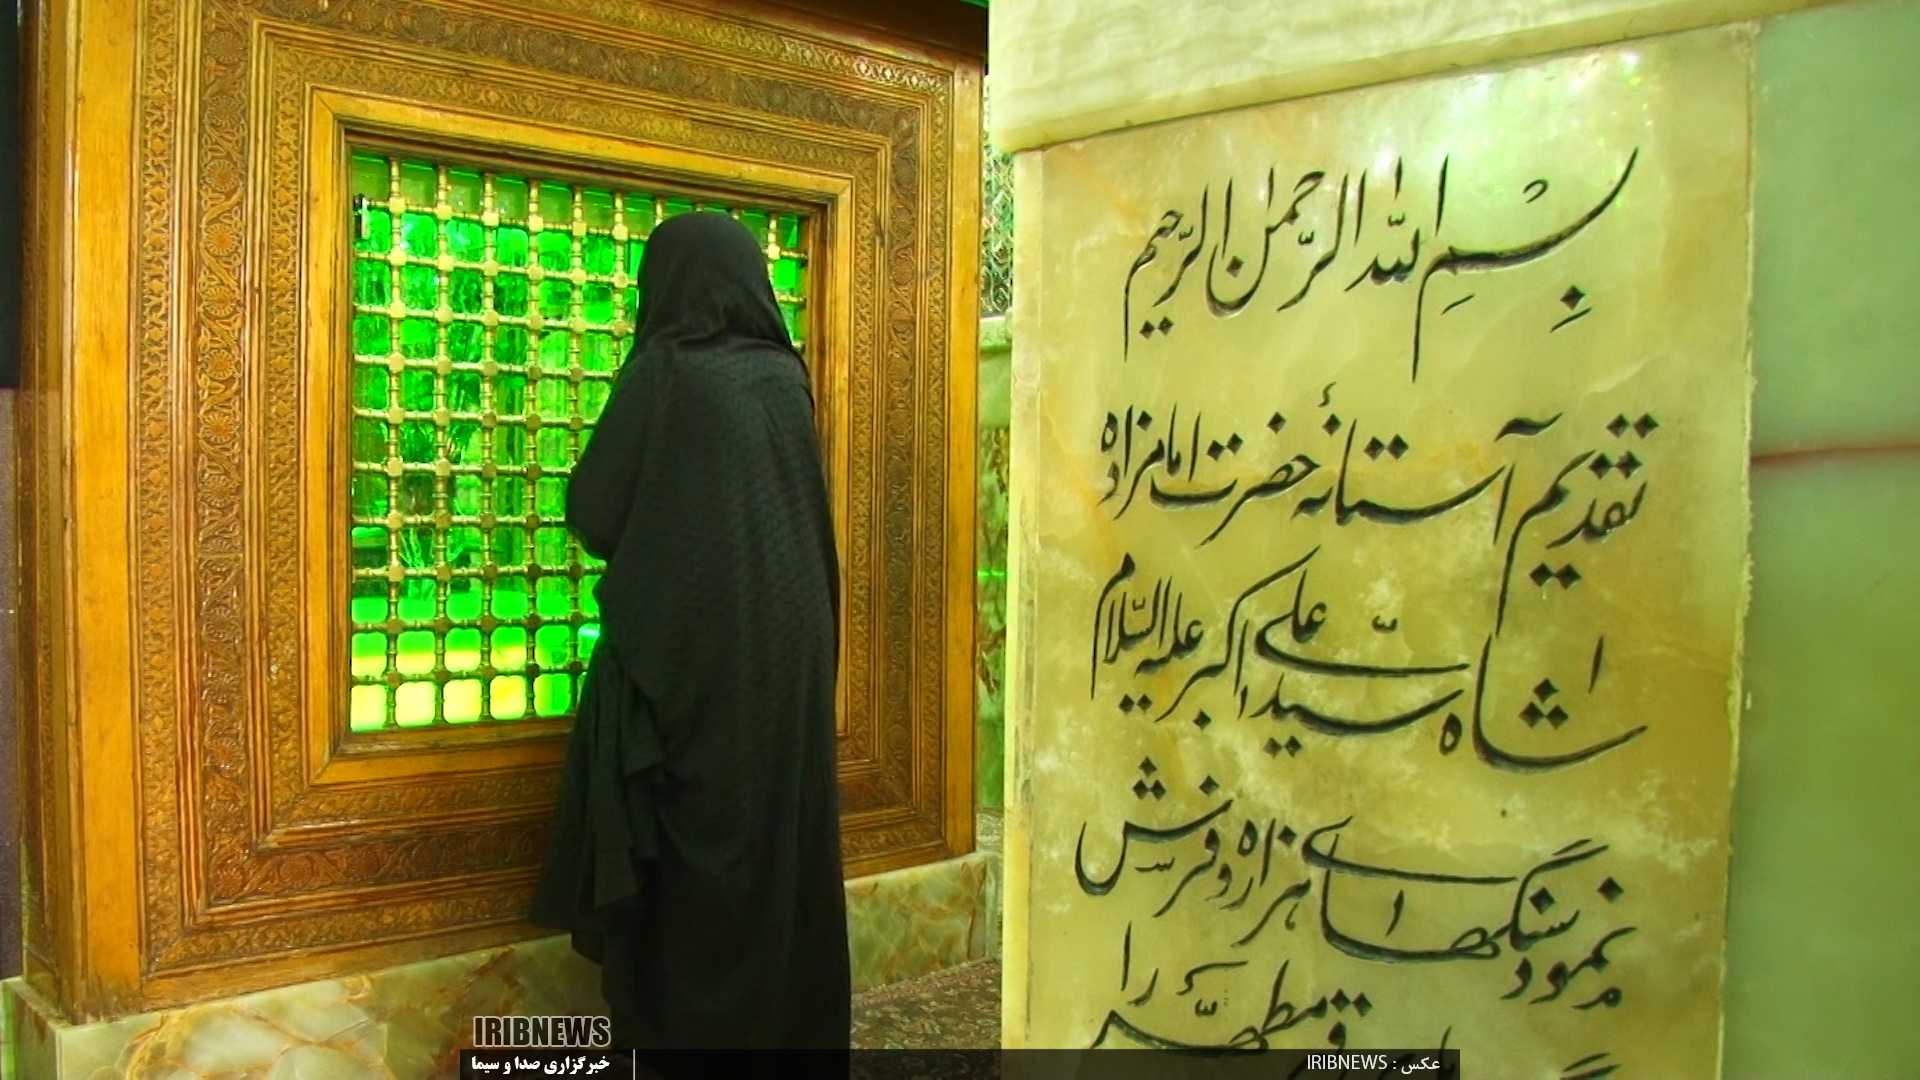 بِسْمِ اللّٰه الرّحمٰن الرّحیم
تقدیم آستانهٔ حضرت امامزاده
شاه سیّد علی اکبر علیه السّلام
نمود سنگهای هزاره و فرش
مطهّر را
IRIBNEWS
خبرگزاری صدا و سیما
عکس : IRIBNEWS